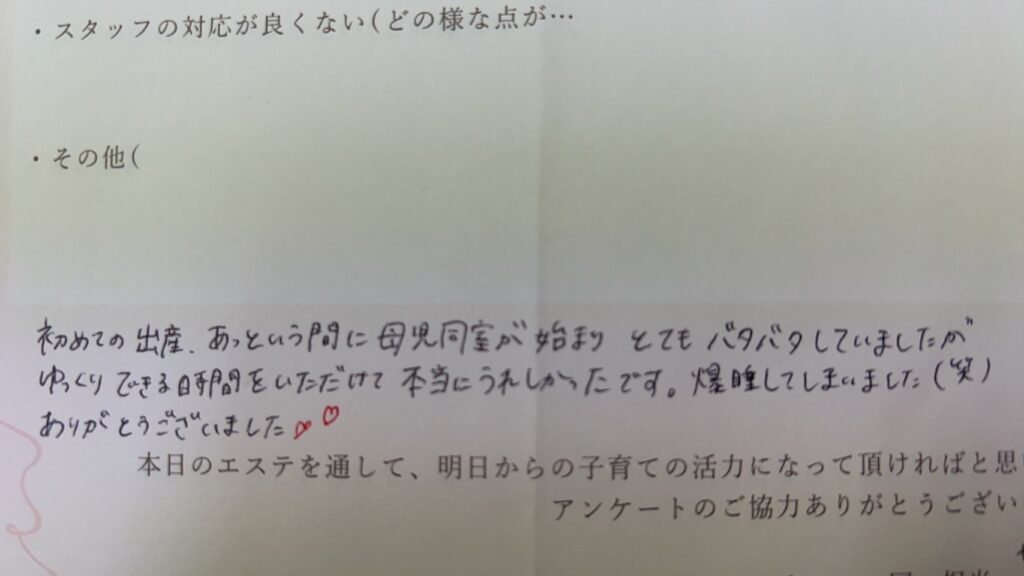 ・スタッフの対応が良くない(どの様な点が…
・その他(
初めての出産、あっという間に母児同室が始まりとてもバタバタしていましたが
ゆっくりできる時間をいただけて本当にうれしかったです。爆睡してしまいました(笑)
ありがとうございました♡♡
本日のエステを通して、明日からの子育ての活力になって頂ければと思
アンケートのご協力ありがとうござい